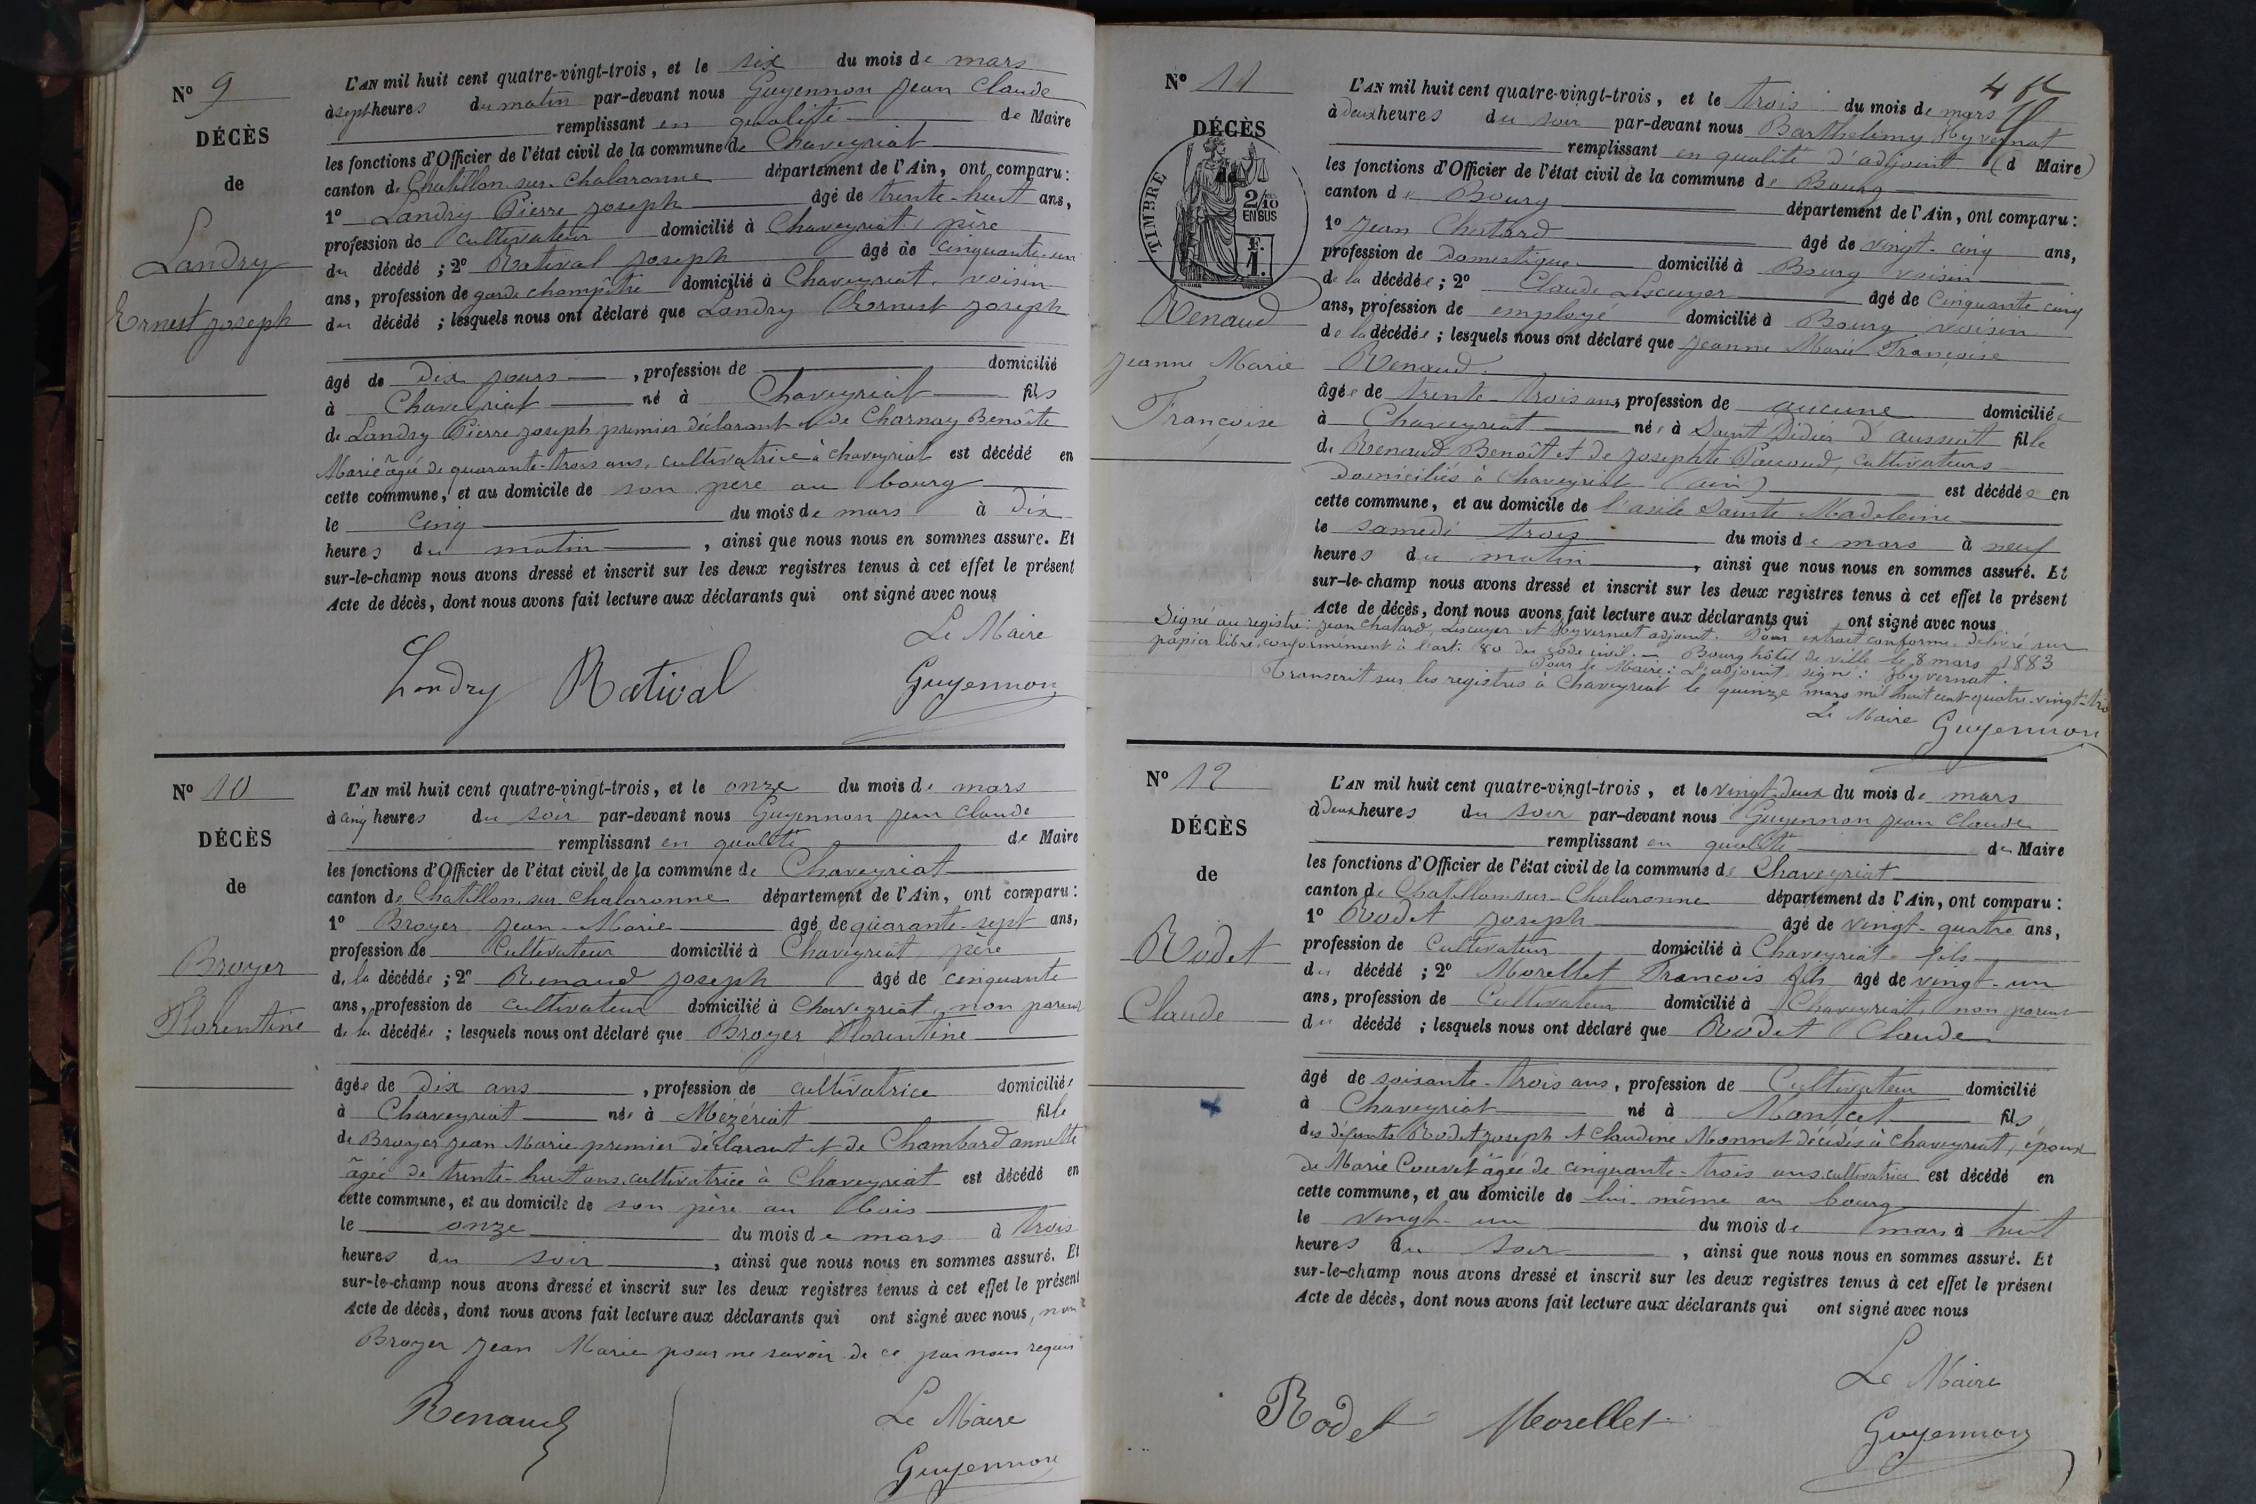 N° 9
DÉCÈS
de
Landry
Ernest Joseph
L'AN mil huit cent quatre-vingt-trois, et le six du mois de mars
à sept heures du matin par-devant nous Guyennon Jean Claude
remplissant en qualité de Maire
les fonctions d'Officier de l'état civil de la commune de Chaveyriat
canton de Chatillon-sur-Chalaronne département de l'Ain, ont comparu :
1° Landry Pierre Joseph âgé de trente-huit ans,
profession de cultivateur domicilié à Chaveyriat, père
du décédé ; 2° Rativai Joseph âgé de cinquante-un
ans, profession de garde champêtre domicilié à Chaveyriat, voisin
du décédé ; lesquels nous ont déclaré que Landry Ernest Joseph
âgé de dix jours, profession de domicilié
à Chaveyriat né à Chaveyriat fils
de Landry Pierre Joseph premier déclarant et de Charnay Benoîte
Marie âgée de quarante-trois ans, cultivatrice à Chaveyriat est décédé en
cette commune, et au domicile de son père au bourg
le cinq du mois de mars à dix
heures du matin, ainsi que nous nous en sommes assuré. Et
sur-le-champ nous avons dressé et inscrit sur les deux registres tenus à cet effet le présent
Acte de décès, dont nous avons fait lecture aux déclarants qui ont signé avec nous
Le Maire
Landry Ratival Guyennon
N° 10
DÉCÈS
de
Broyer
Florentine
L'AN mil huit cent quatre-vingt-trois, et le onze du mois de mars
à cinq heures du soir par-devant nous Guyennon Jean Claude
remplissant en qualité de Maire
les fonctions d'Officier de l'état civil de la commune de Chaveyriat
canton de Chatillon-sur-Chalaronne département de l'Ain, ont comparu :
1° Broyer Jean-Marie âgé de quarante-sept ans,
profession de Cultivateur domicilié à Chaveyriat, père
de la décédée ; 2° Renaud Joseph âgé de cinquante
ans, profession de cultivateur domicilié à Chaveyriat, non parent
de la décédée ; lesquels nous ont déclaré que Broyer Florentine
âgée de dix ans, profession de cultivatrice domiciliée
à Chaveyriat née à Mézériat fille
de Broyer Jean Marie premier déclarant et de Chambard annette
âgée de trente-huit ans, cultivatrice à Chaveyriat est décédé en
cette commune, et au domicile de son père au bois
le onze du mois de mars à trois
heures du soir, ainsi que nous nous en sommes assuré. Et
sur-le-champ nous avons dressé et inscrit sur les deux registres tenus à cet effet le présent
Acte de décès, dont nous avons fait lecture aux déclarants qui ont signé avec nous, non
Broyer Jean Marie pour ne savoir de ce par nous requis
Le Maire
Renaud Guyennon
N° 11
DÉCÈS
de
TIMBRE
2/10
EN SUS
F.
1.
Renaud
Jeanne Marie
Françoise
L'AN mil huit cent quatre-vingt-trois, et le trois du mois de mars
à deux heures du soir par-devant nous Barthélemy Hyvernat
remplissant en qualité d'adjoint (d Maire)
les fonctions d'Officier de l'état civil de la commune de Bourg
canton de Bourg département de l'Ain, ont comparu :
1° Jean Chatard âgé de vingt-cinq ans,
profession de Domestique domicilié à Bourg voisin
de la décédée ; 2° Claude Lescuyer âgé de Cinquante cinq
ans, profession de employé domicilié à Bourg, voisin
de la décédée ; lesquels nous ont déclaré que Jeanne Marie Françoise
Renaud
âgée de trente-trois ans, profession de aucune domiciliée
à Chaveyriat née à Saint Didier d'aussiat fille
de Renaud Benoît et de Josephte Pauvoud, cultivateurs
domiciliés à Chaveyriat (ain) est décédée en
cette commune, et au domicile de l'asile Sainte Madeleine
le samedi trois du mois de mars à neuf
heures du matin, ainsi que nous nous en sommes assuré. Et
sur-le-champ nous avons dressé et inscrit sur les deux registres tenus à cet effet le présent
Acte de décès, dont nous avons fait lecture aux déclarants qui ont signé avec nous
Signé au registre : Jean Chatard, Lescuyer et Hyvernat adjoint. Pour extrait conforme délivré sur
papier libre, conformément à l'art. 80 du code civil. — Bourg hôtel de ville le 8 mars 1883
Pour le Maire : L'adjoint signé : Hyvernat.
Transcrit sur les registres à Chaveyriat le quinze mars mil huit cent quatre-vingt-trois
Le Maire Guyennon
N° 12
DÉCÈS
de
Rodet
Claude
L'AN mil huit cent quatre-vingt-trois, et le vingt-deux du mois de mars
à deux heures du soir par-devant nous Guyennon Jean Claude
remplissant en qualité de Maire
les fonctions d'Officier de l'état civil de la commune de Chaveyriat
canton de Chatillon-sur-Chalaronne département de l'Ain, ont comparu :
1° Rodet Joseph âgé de vingt-quatre ans,
profession de Cultivateur domicilié à Chaveyriat fils
du décédé ; 2° Morellet François fils âgé de vingt-un
ans, profession de Cultivateur domicilié à Chaveyriat, non parent
du décédé ; lesquels nous ont déclaré que Rodet Claude
âgé de soixante-trois ans, profession de Cultivateur domicilié
à Chaveyriat né à Montcet fils
des défunts Rodet Joseph et Claudine Monnet décédés à Chaveyriat, époux
de Marie Couvet âgée de cinquante-trois ans cultivatrice est décédé en
cette commune, et au domicile de lui-même au bourg
le vingt-un du mois de mars à huit
heures du soir, ainsi que nous nous en sommes assuré. Et
sur-le-champ nous avons dressé et inscrit sur les deux registres tenus à cet effet le présent
Acte de décès, dont nous avons fait lecture aux déclarants qui ont signé avec nous
Le Maire
Rodet Morellet Guyennon